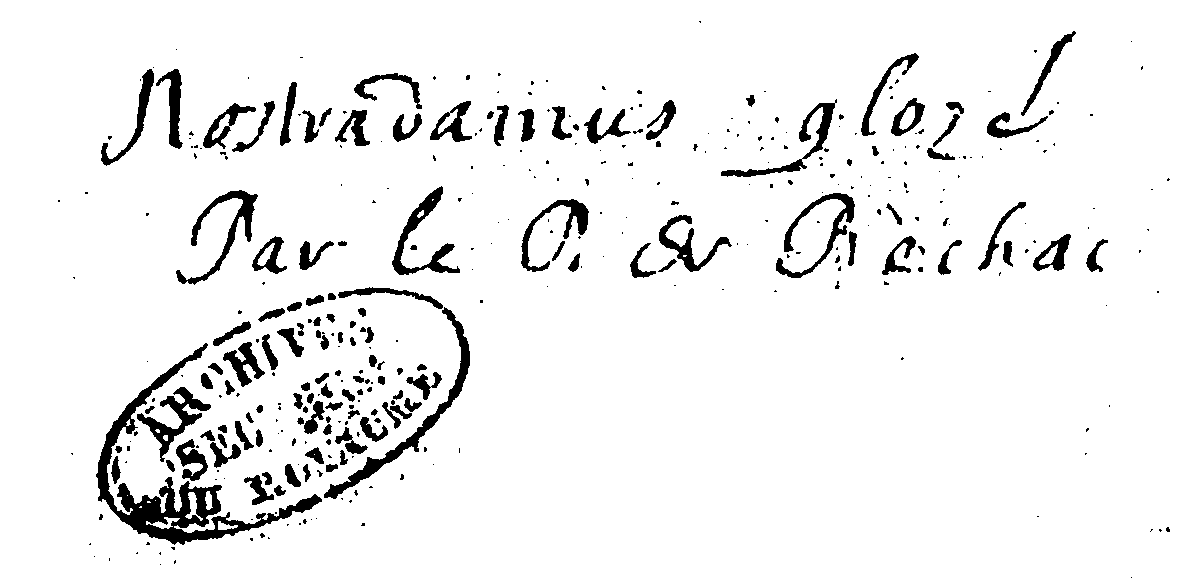 Nostradamus glozé
Par le P. de Rèchac
ARCHIVES
SEC
DU ROYAUME